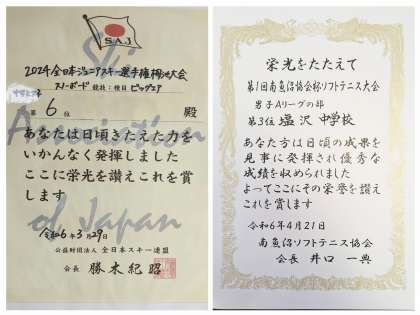 S.A.J
Ski
Association
of Japan
2024全日本ジュニアスキー選手権栂池大会
スノーボード 競技:種目 ビッグエア
第 6 位 殿
あなたは日頃きたえた力を
いかんなく発揮しました
ここに栄光を讃えこれを賞
します
令和6年3月29日
公益財団法人 全日本スキー連盟
会長 勝木紀昭
栄光をたたえて
第1回南魚沼協会杯ソフトテニス大会
男子Aリーグの部
第3位 塩沢 中学校
あなた方は日頃の成果を
見事に発揮され優秀な
成績を収められました
よってここにその栄誉を讃え
これを賞します
令和6年4月21日
南魚沼ソフトテニス協会
会長 井口 一典